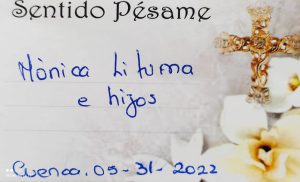 Sentido Pésame
Mònica Lituma
e hijos
Cuenca, 05-31-2022